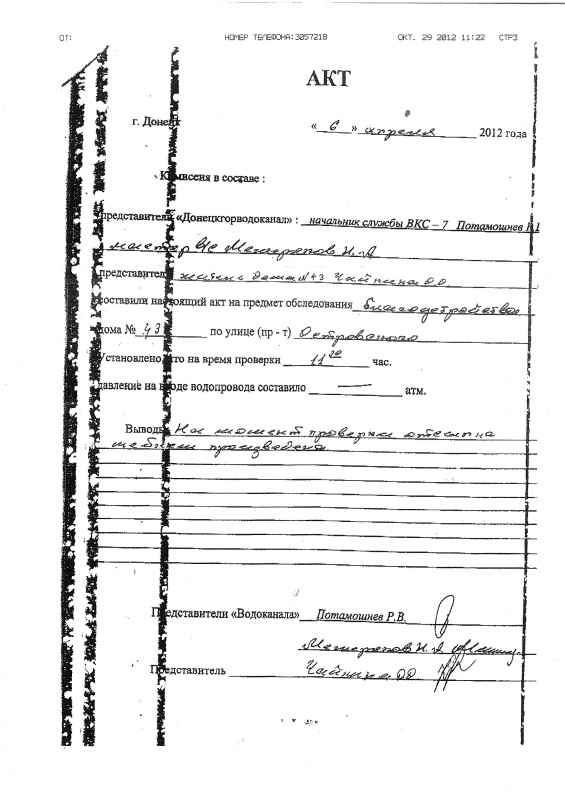 ОТ: НОМЕР ТЕЛЕФОНА:3057218 ОКТ. 29 2012 11:22 СТР3
АКТ
г. Донецк « 6 » апреля 2012 года
Комиссия в составе :
представителя «Донецкгорводоканал» : начальник службы ВКС – 7 Потамошнев Р.
мастер Межерепов Н.А
представител жителя дома № 43 Чайкина О.О.
составили настоящий акт на предмет обследования благоустройство
дома № 43 по улице (пр - т) Островского
Установлено что на время проверки 11 час.
давление на вводе водопровода составило — атм.
Выводы На момент проверки отсыпка
щебнем произведена
Представители «Водоканала» Потамошнев Р.В.
Межерепов Н.А
Представитель Чайкина О.О